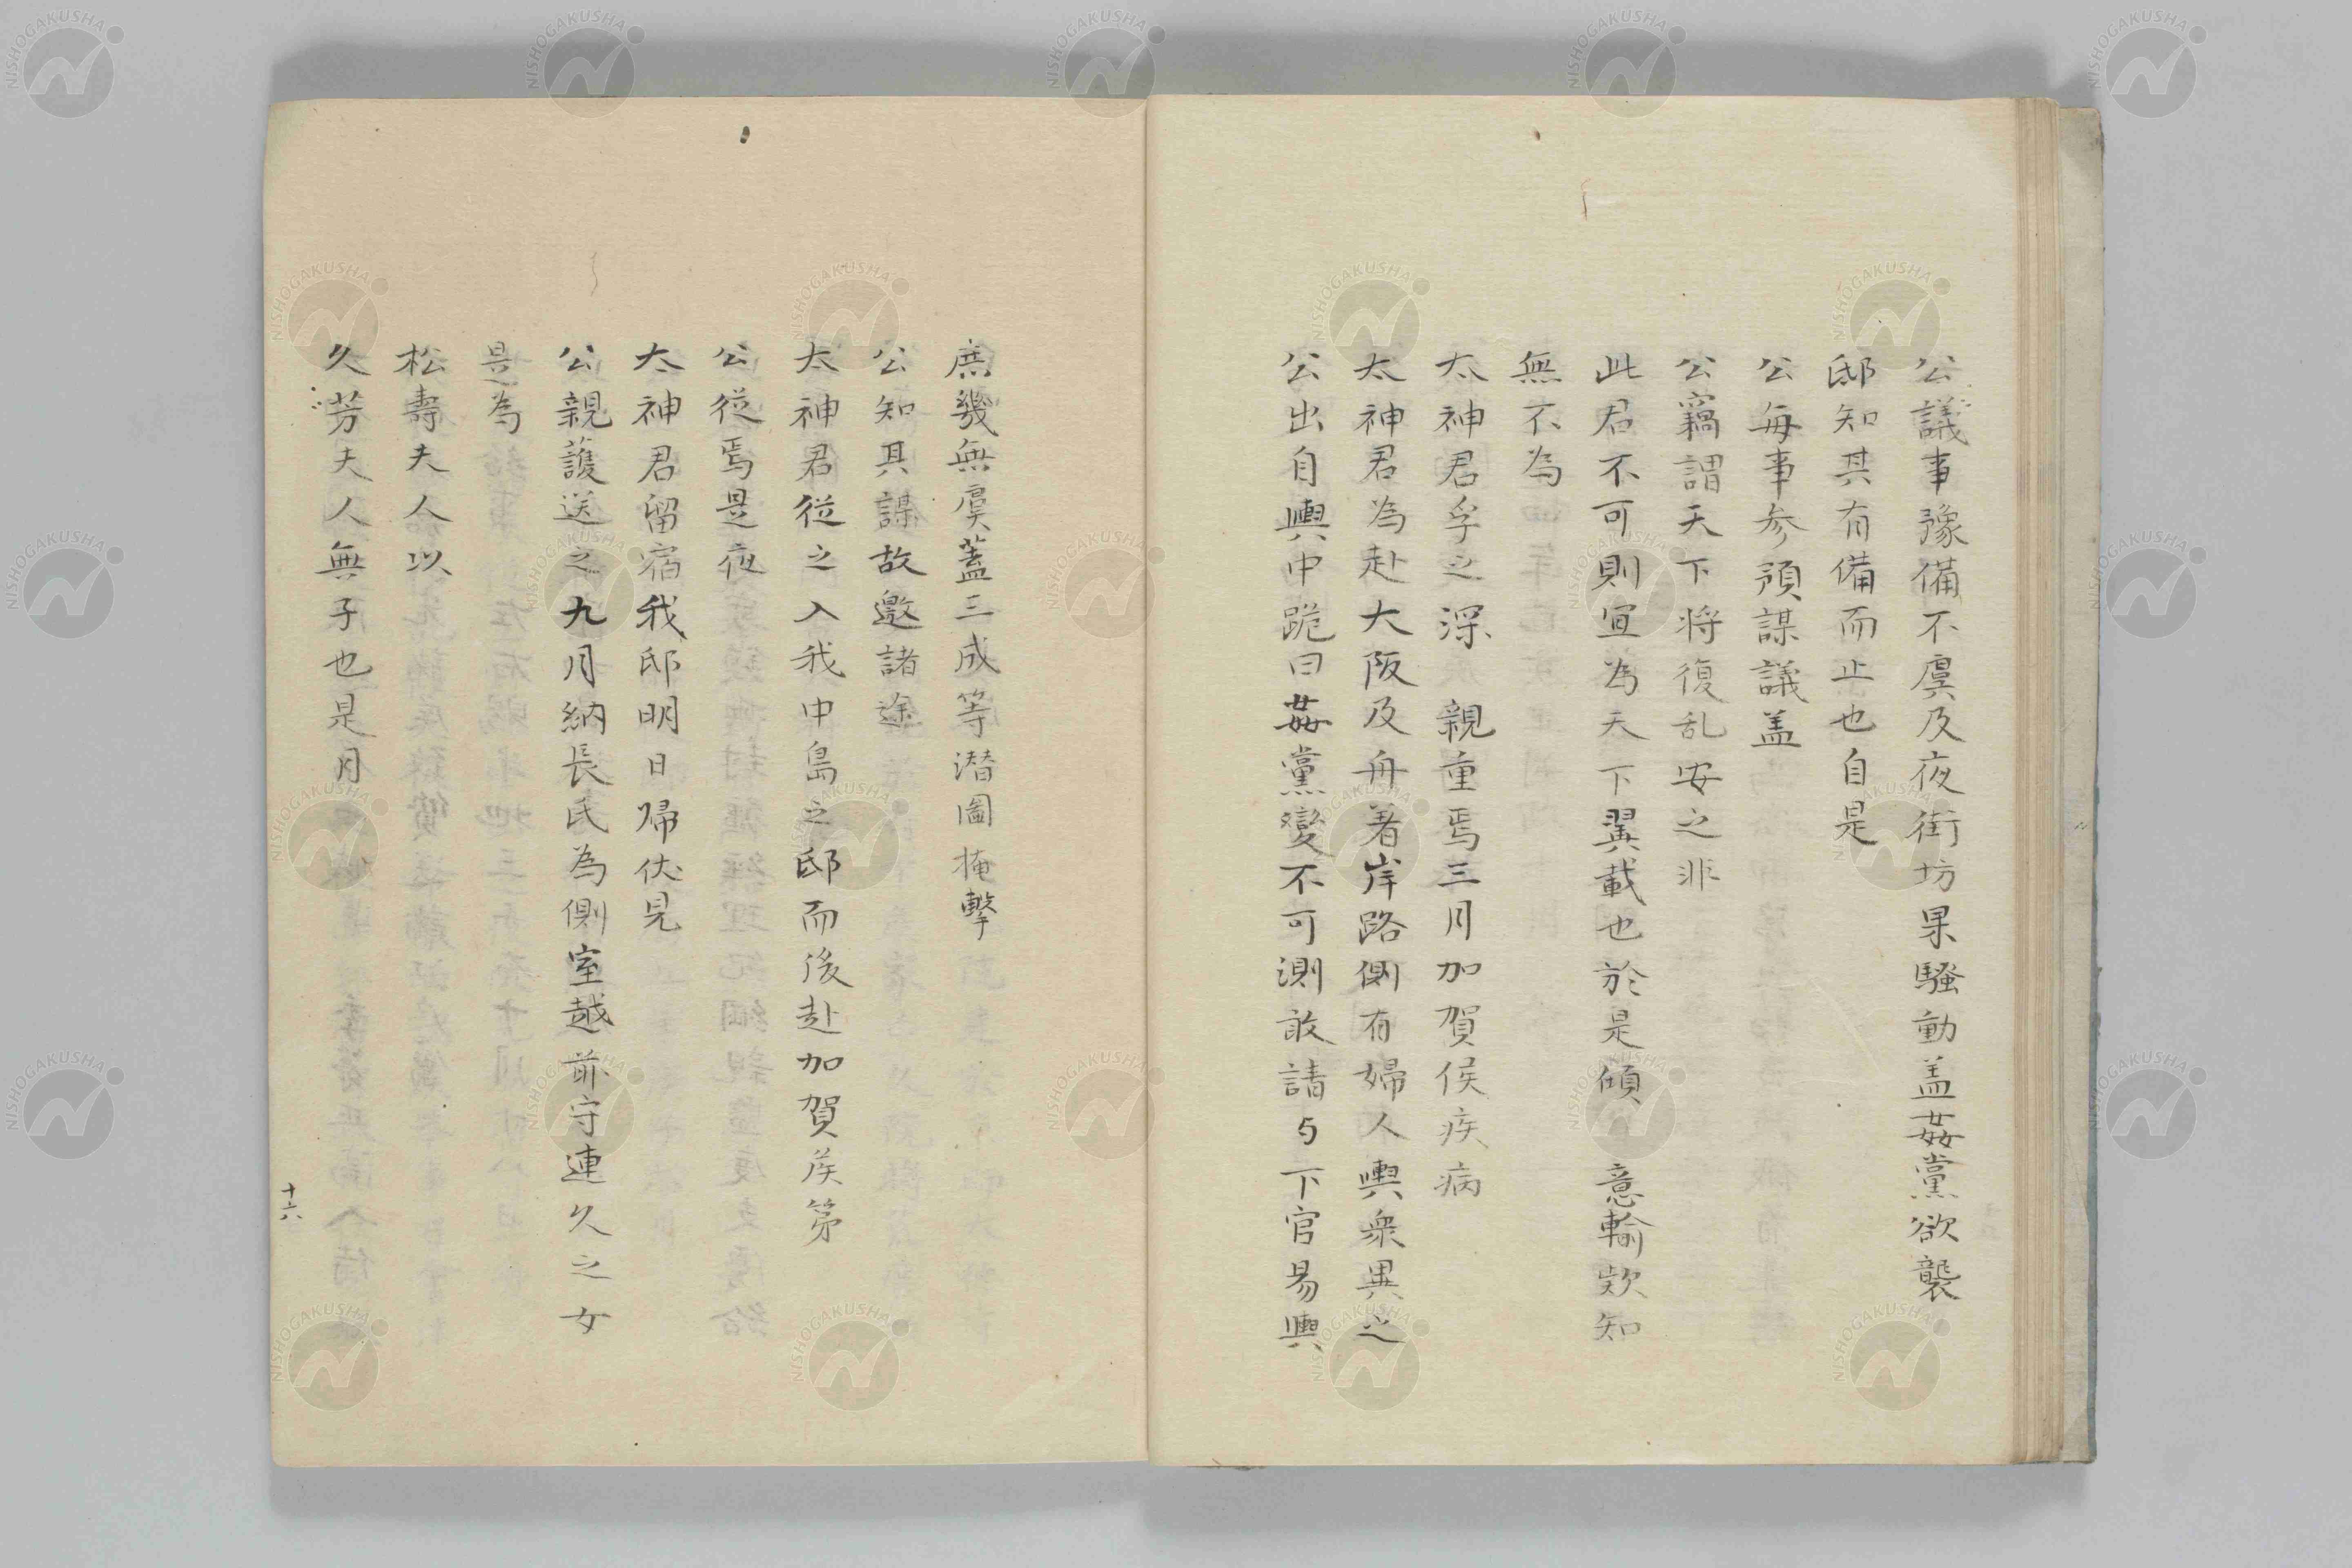 公議事豫備不虞及夜街坊果騷動盖姦黨欲襲
邸知其有備而止也自是
公每事参預謀議盖
公竊謂天下将復乱安之非
此君不可則宜為天下翼載也於是傾　意輸欵知
無不為
太神君孚之深　親重焉三月加賀侯疾病
太神君為赴大阪及舟着岸路側有婦人輿衆異之
公出自輿中跪曰姦黨變不可測敢請与下官易輿
庶幾無虞蓋三成等潜圖掩擊
公知其謀故邀諸途
太神君従之入我中島之邸而後赴加賀侯第
公従焉是夜
太神君留宿我邸明日帰伏見
公親護送之九月納長氏為側室越前守連久之女
是為
松壽夫人以
久芳夫人無子也是月
十六
NISHOGAKUSHA